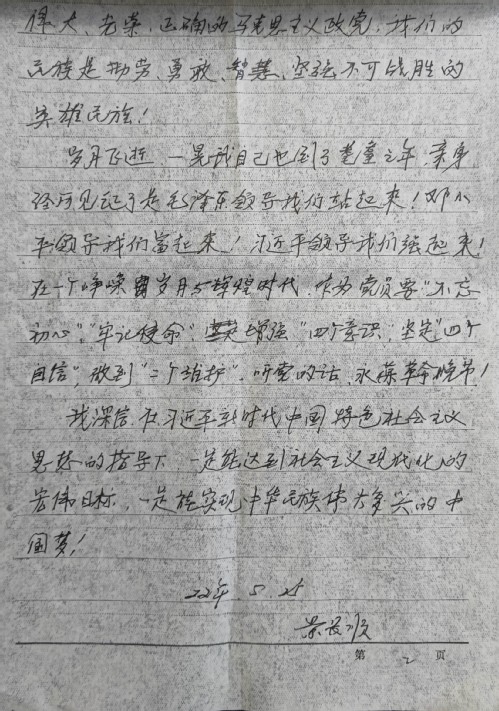 伟大、光荣、正确的马克思主义政党，我们的
民族是勤劳、勇敢、智慧、坚强不可战胜的
英雄民族！
岁月飞逝，一晃我自己也到了耄耋之年，亲身
经历见证了是毛泽东领导我们站起来！邓小
平领导我们富起来！习近平领导我们强起来！
在一个峥嵘岁月与辉煌时代，作为党员要“不忘
初心”，“牢记使命”，增强“四个意识”，坚定“四个
自信”，做到“二个维护”，听党的话，永葆革命晚节！
我深信，在习近平新时代中国特色社会主义
思想的指导下，一定能达到社会主义现代化的
宏伟目标，一定能实现中华民族伟大复兴的中
国梦！
22年5.25
第 2 页